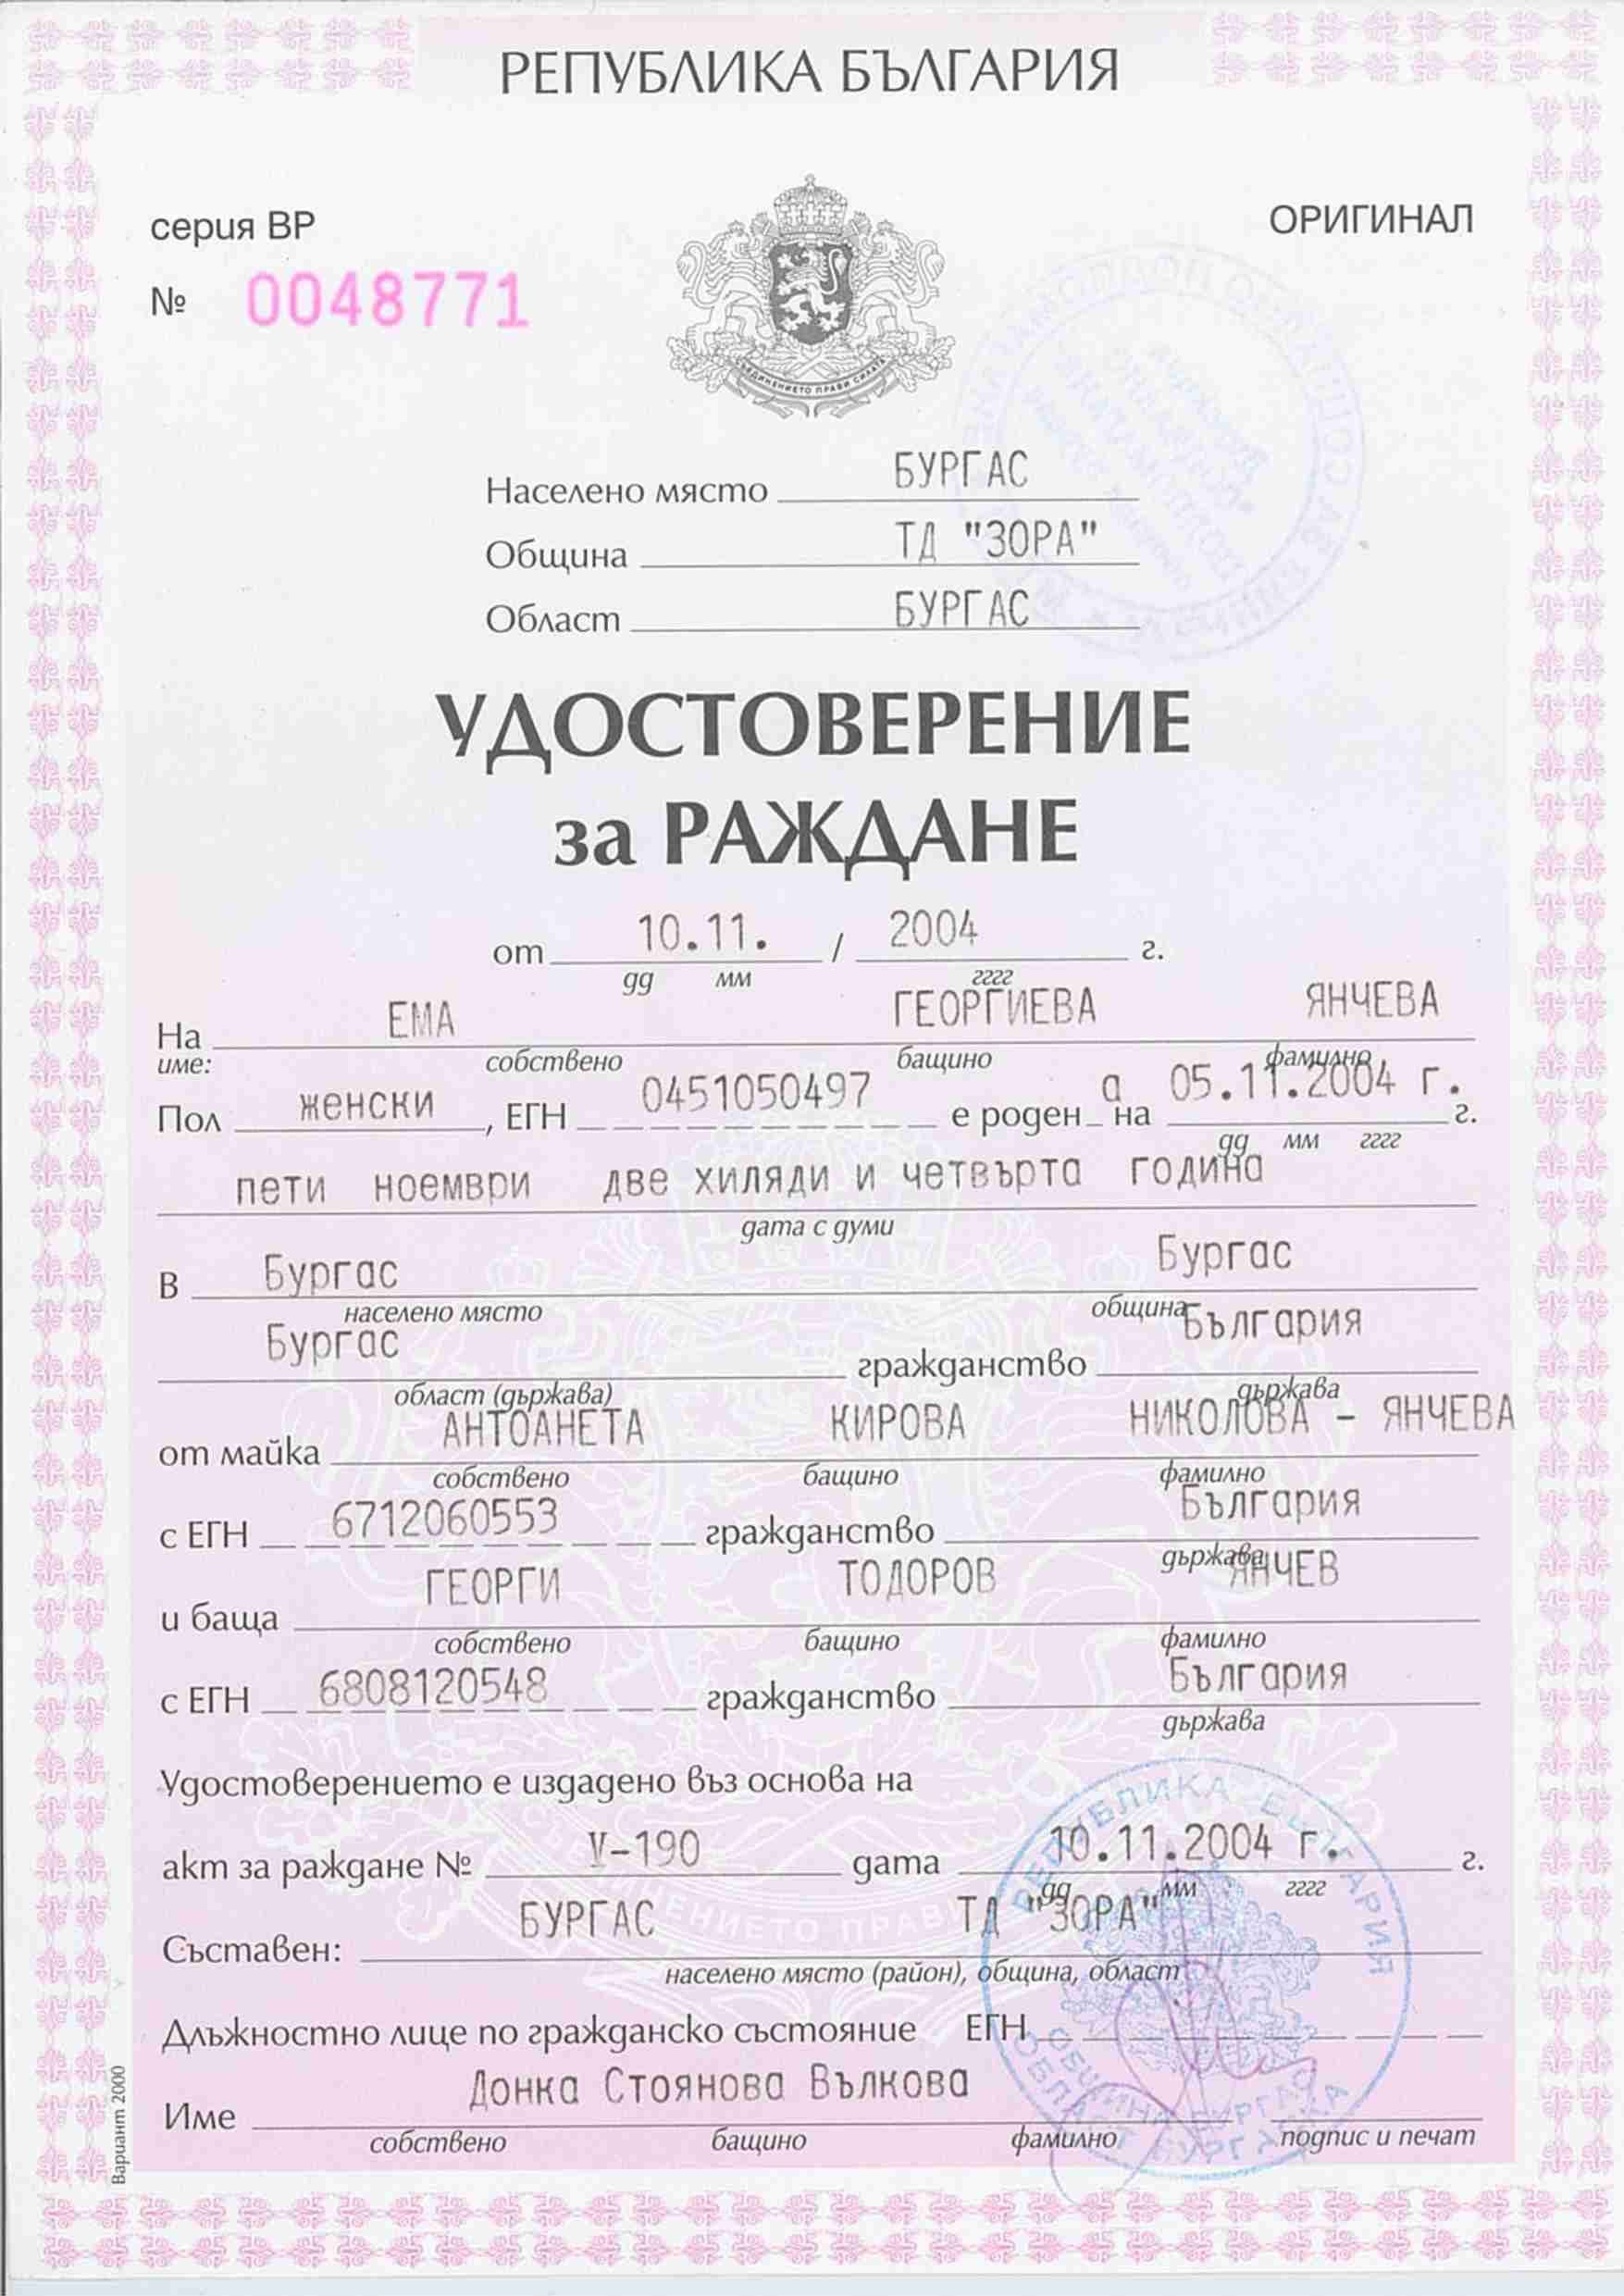 РЕПУБЛИКА БЪЛГАРИЯ
серия ВР
ОРИГИНАЛ
№ 0048771
СЪЕДИНЕНИЕТО ПРАВИ СИЛАТА
Населено място БУРГАС
Община ТД "ЗОРА"
Област БУРГАС
УДОСТОВЕРЕНИЕ
за РАЖДАНЕ
от 10.11. / 2004 г.
дд мм гггг
На ЕМА ГЕОРГИЕВА ЯНЧЕВА
име: собствено бащино фамилно
Пол женски, ЕГН 0451050497 е роден а на 05.11.2004 г. г.
дд мм гггг
пети ноември две хиляди и четвърта година
дата с думи
В Бургас Бургас
населено място община
Бургас гражданство България
област (държава) държава
от майка АНТОАНЕТА КИРОВА НИКОЛОВА - ЯНЧЕВА
собствено бащино фамилно
с ЕГН 6712060553 гражданство България
държава
и баща ГЕОРГИ ТОДОРОВ ЯНЧЕВ
собствено бащино фамилно
с ЕГН 6808120548 гражданство България
държава
Удостоверението е издадено въз основа на
акт за раждане № V-190 дата 10.11.2004 г. г.
дд мм гггг
Съставен: БУРГАС ТД "ЗОРА"
населено място (район), община, област
Длъжностно лице по гражданско състояние ЕГН
Име Донка Стоянова Вълкова
собствено бащино фамилно подпис и печат
РЕПУБЛИКА БЪЛГАРИЯ
ОБЩИНА БУРГАС
ОБЛАСТ БУРГАСКА
Вариант 2000